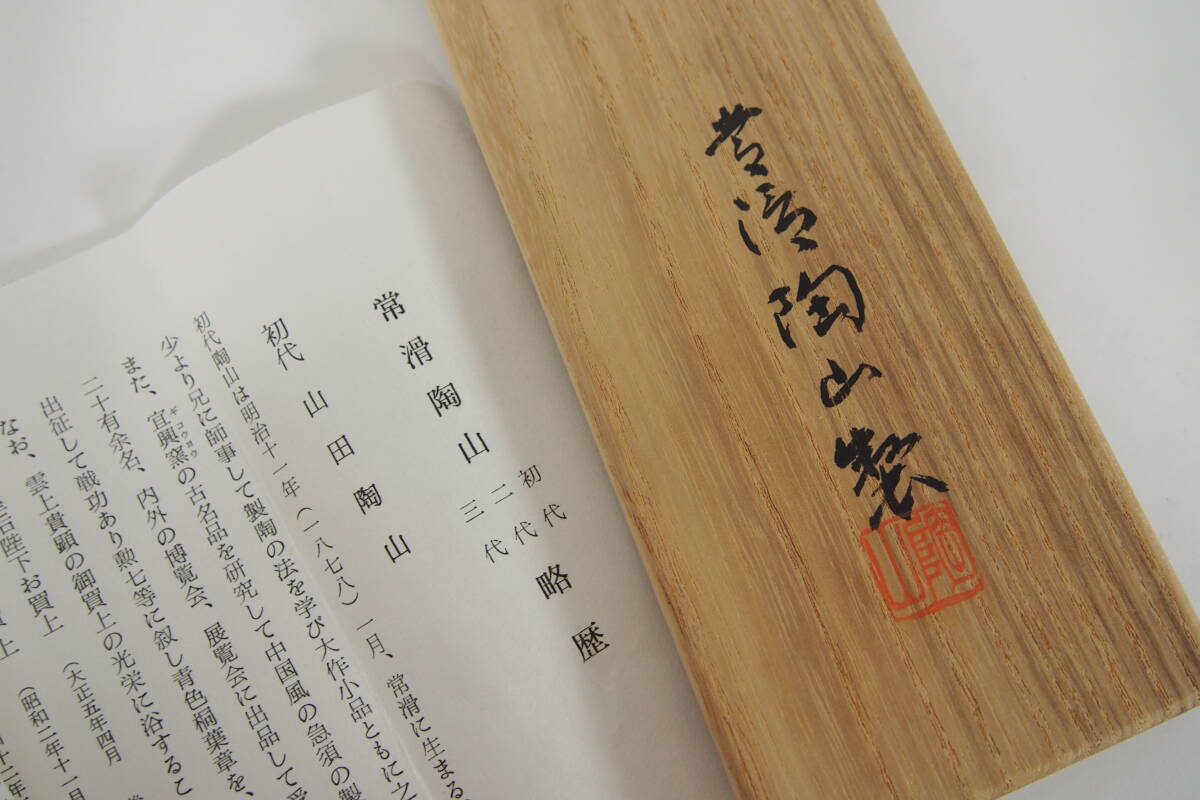 常滑陶山製
陶山
常滑陶山 初代 二代 三代 略歴
初代 山田陶山
初代陶山は明治十一年（一八七八）一月、常滑に生まる
少より兄に師事して製陶の法を学び大作小品ともに之
また、宜興窯の古名品を研究して中国風の急須の製
ギコウヨウ
二十有余名、内外の博覧会、展覧会に出品して受
出征して戦功あり勲七等に叙し青色桐葉章を、
なお、雲上貴顕の御買上の光栄に浴するこ
陛下お買上 （大正五年四月
買上 （昭和二年十一月
十二年